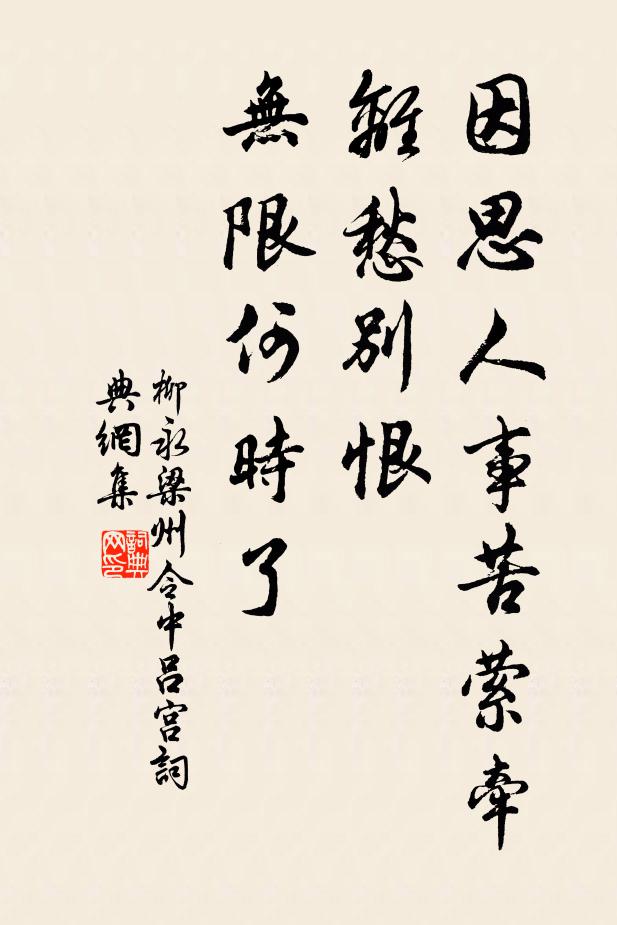 因思人事苦縈牽
離愁別恨
無限何時了
柳永梁州令中呂宮詞
典網集
詞典網印